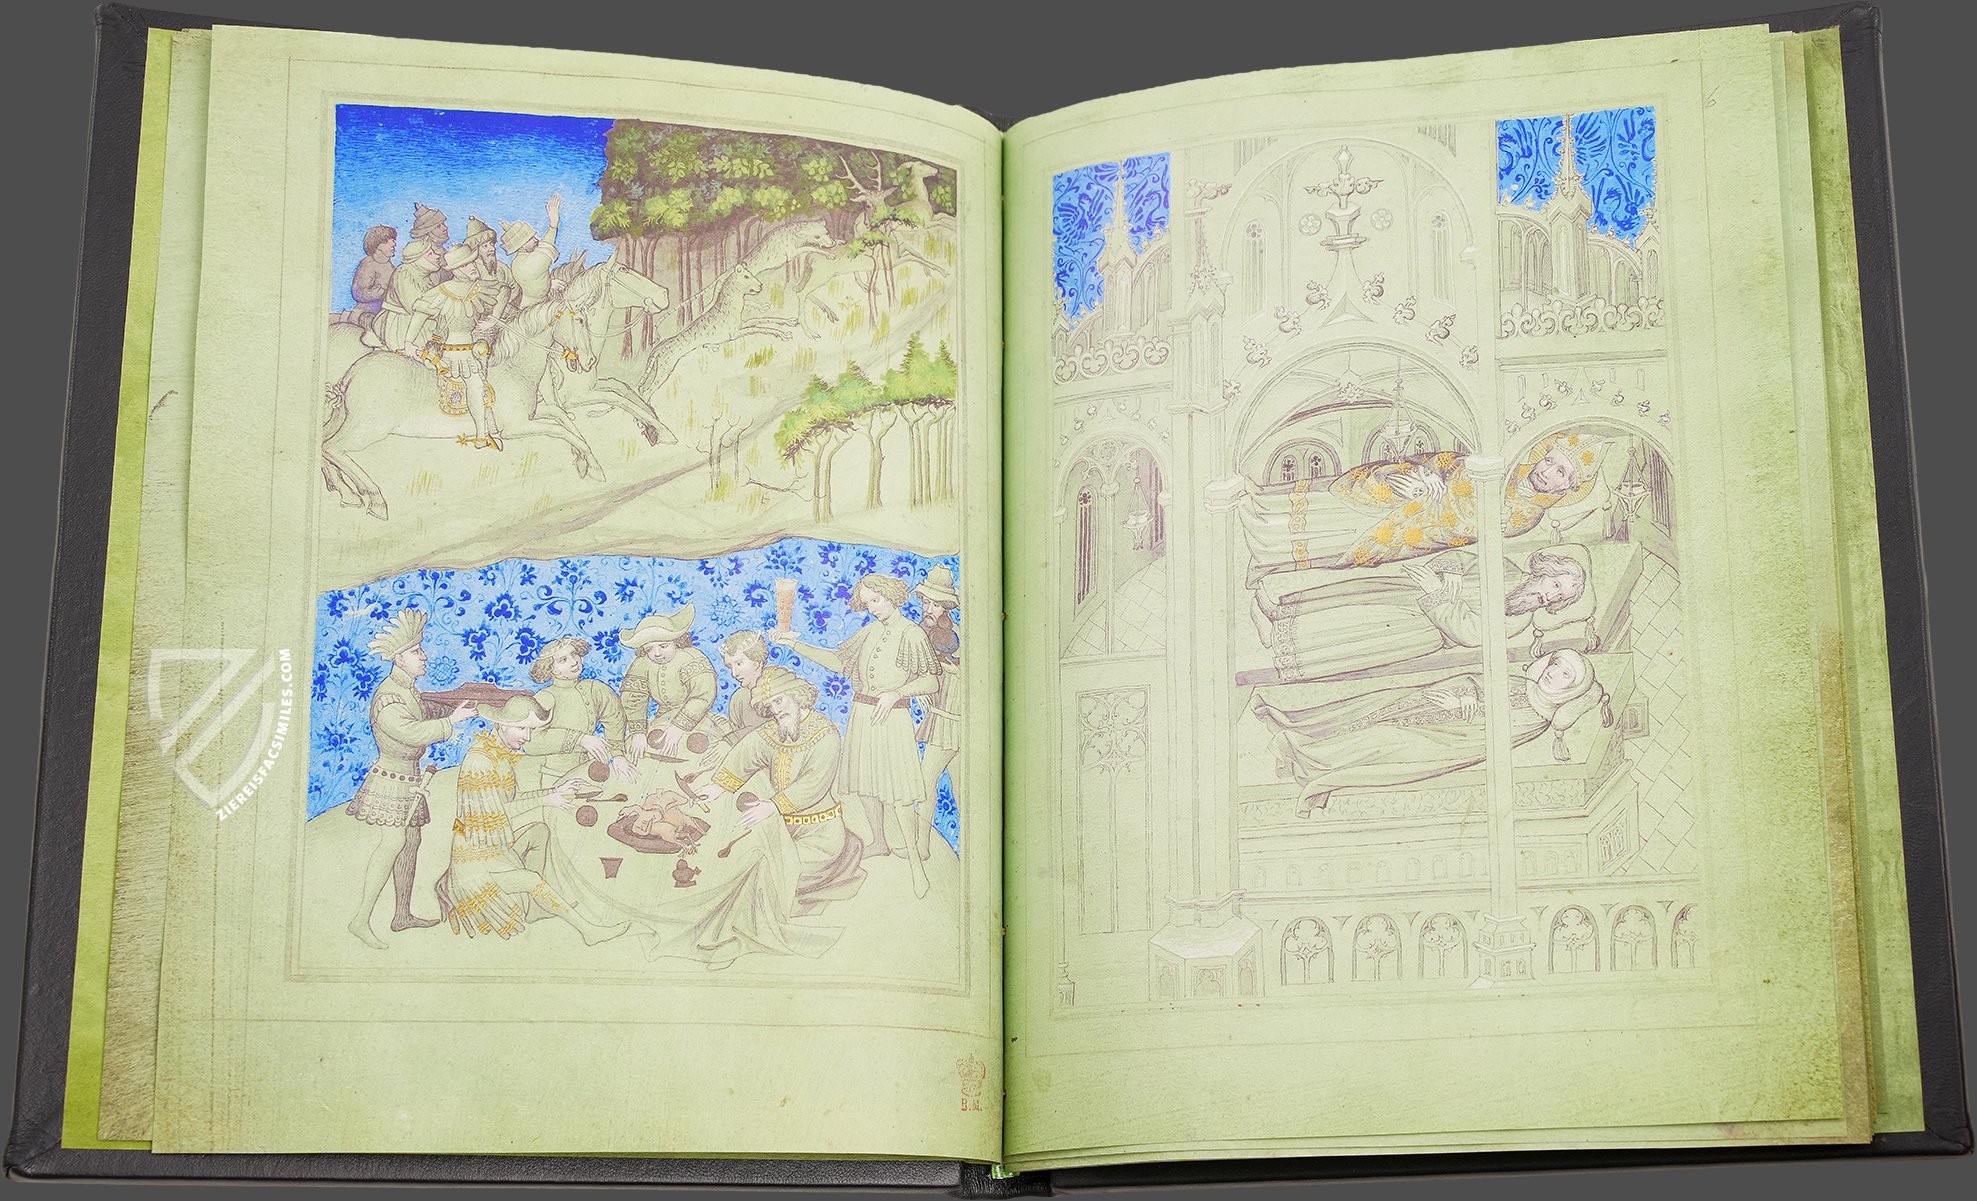 ZIEREISFACSIMILES.COM
B.M.
6